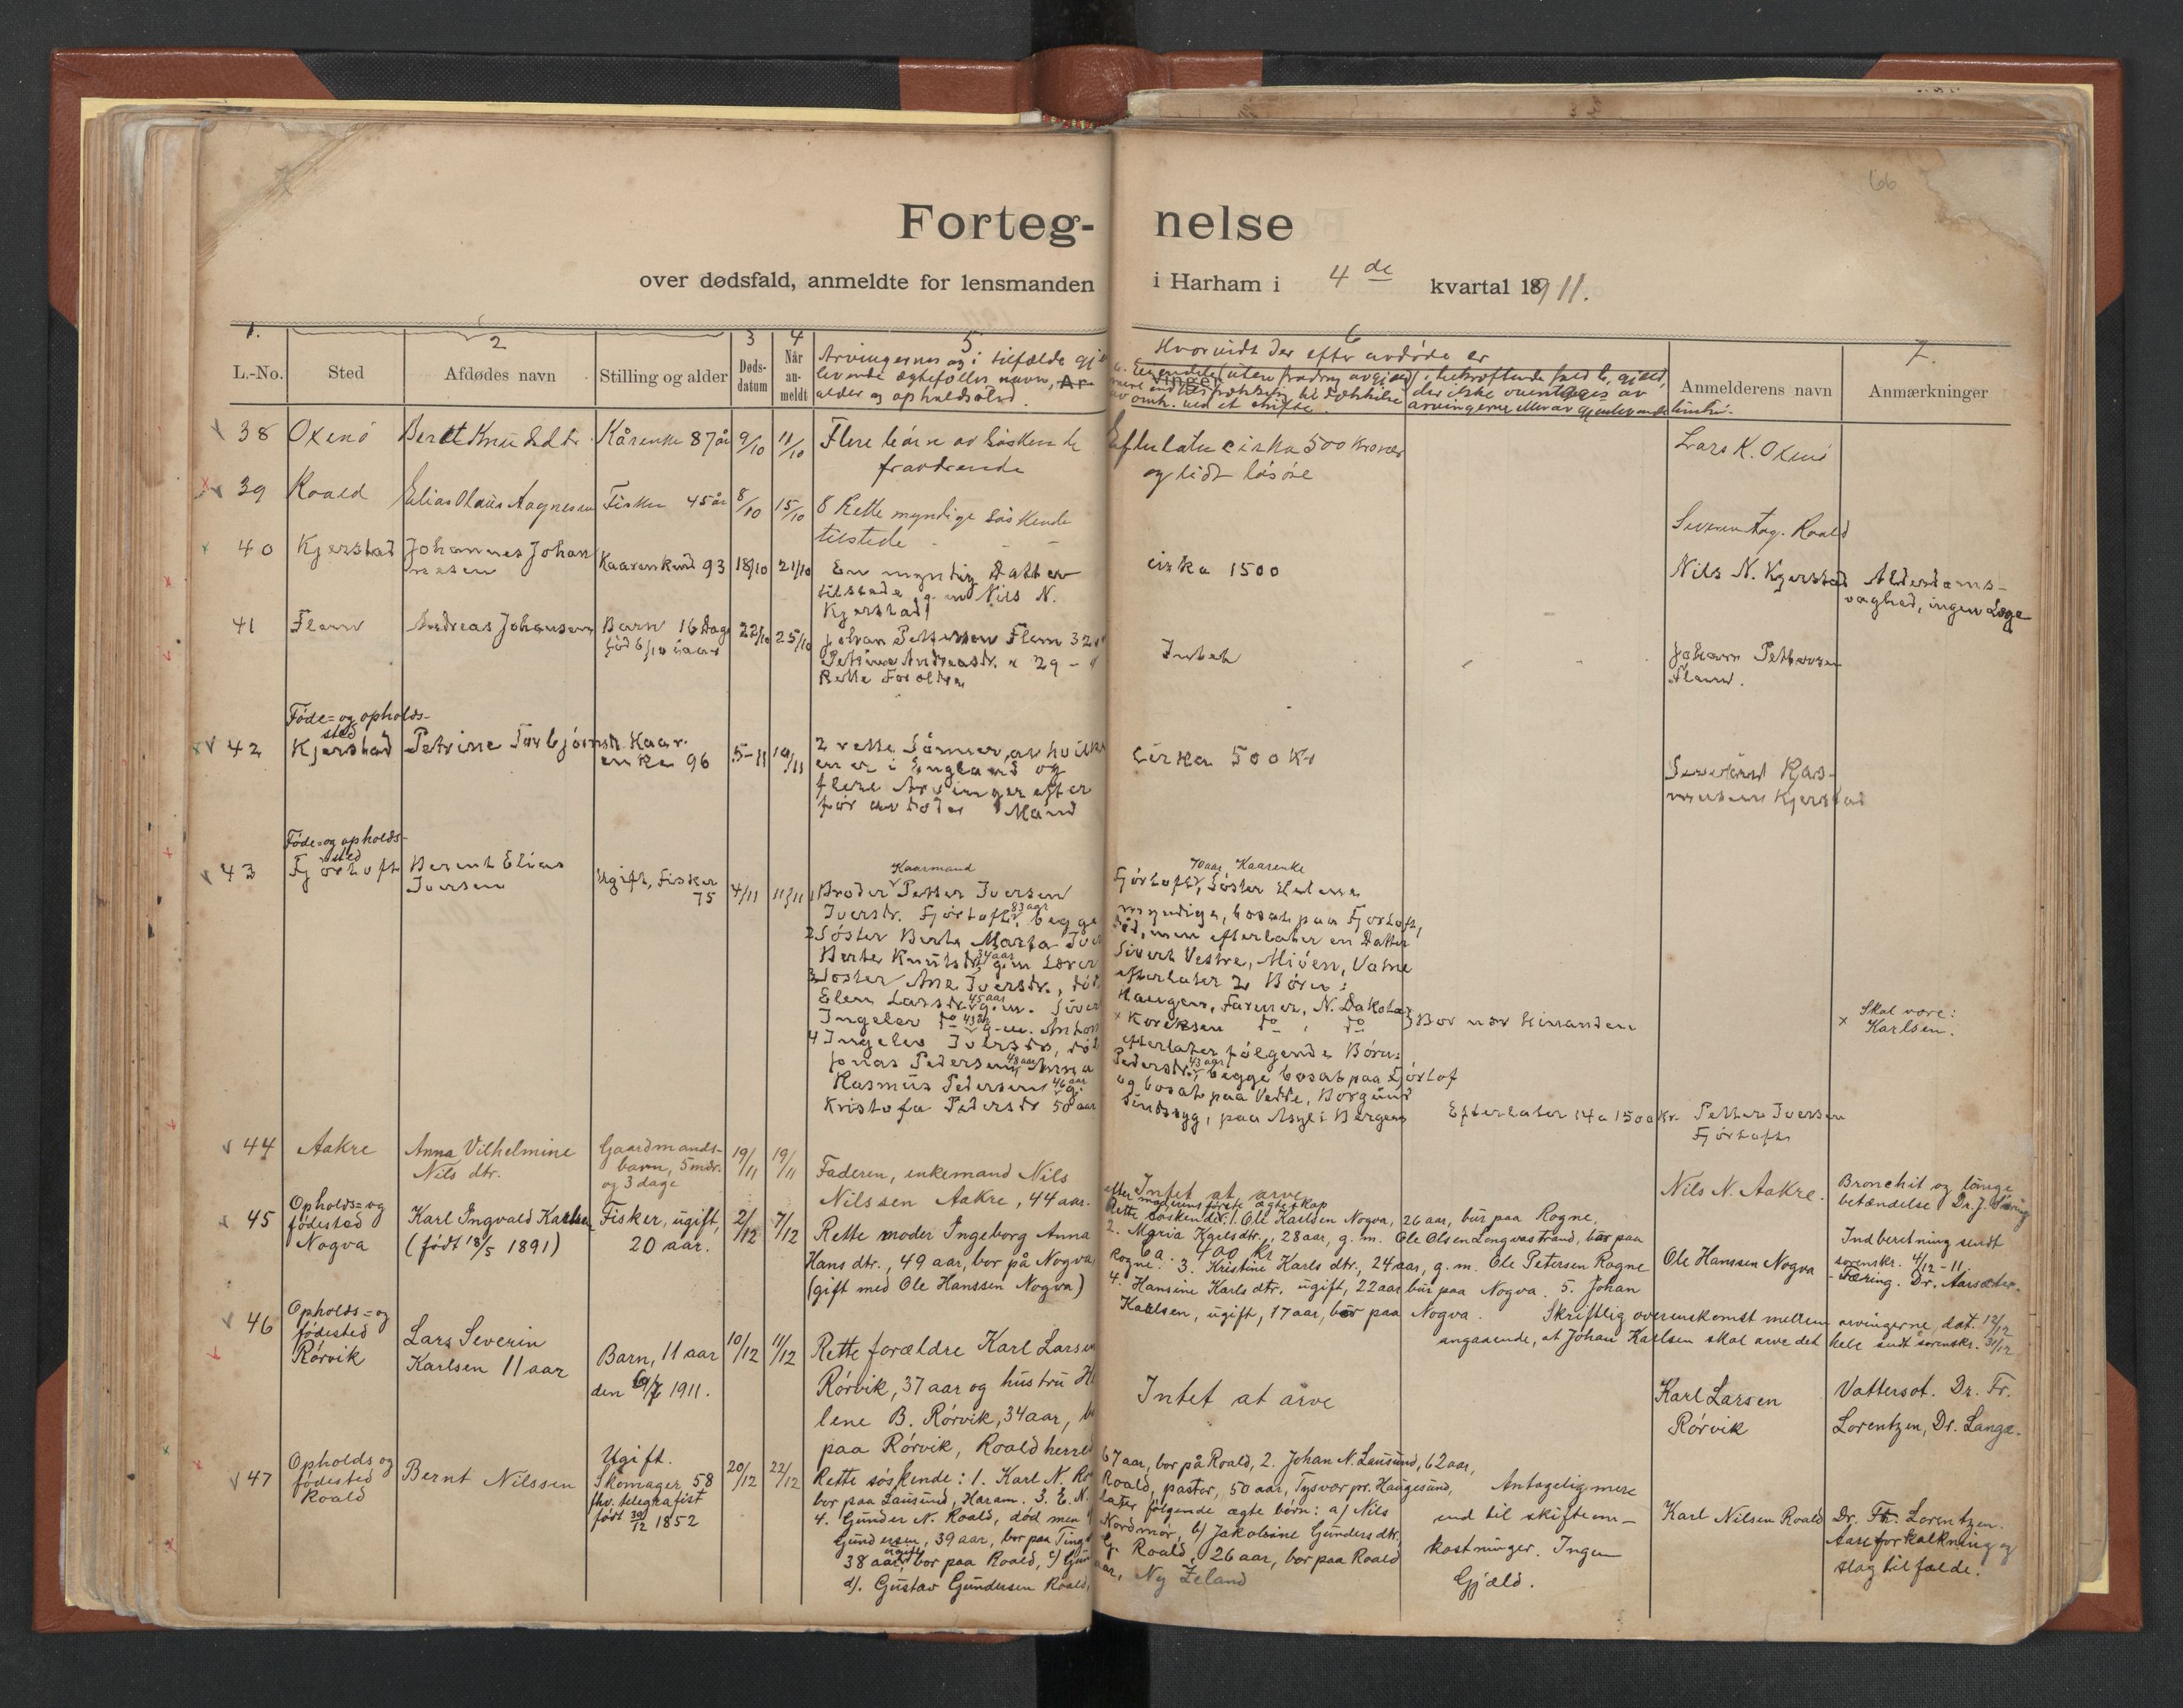 66
Forteg- nelse
over dødsfald, anmeldte for lensmanden i Harham i 4de kvartal 1911.
1. 2 3 4 5 6 7.
L.-No. Sted Afdødes navn Stilling og alder Døds-datum Når an-meldt
Arvingernes og i tilfælde
levende ægtefælles navn,
alder og opholdssted.
Hvorvidt der efter avdøde er
Anmelderens navn Anmærkninger
38 Oxenö Beret Knudsdtr. Kårenke 87 år 9/10 11/10 Flere börn av Söskende
fraværende
Efterlater cirka 500 kroner
og lidt lösöre
Lars K. Oxenö
39 Roald Elias Olaus Aagnesen Fisker 45 år 8/10 15/10 8 Rette myndige Söskende
tilstede
Severin Aag. Roald
40 Kjerstad Johannes Johan
nesen
Kaarenkmd 93 18/10 21/10 En myndig Datter
tilstede g. m Nils N.
Kjerstad
cirka 1500
Nils N. Kjerstad
Alderdoms-
svaghed, ingen Læge
41 Flem Andreas Johansen Barn 16 Dage
född 6/10 iaar
22/10 25/10 Johan Pettersen Flem 32
Petrine Andreasdtr. 29
Rette Forældre
Intet
Johan Pettersen
Flem.
Föde- og opholds-
sted
42 Kjerstad Petrine Torbjörnsdtr. Kaar-
enke 96
5-11 10/11 2 rette Sönner, av hvilke
en er i England og
flere Arvinger efter
før avdöde Mand
cirka 500 Kr
Rasmusen Kjerstad
Föde- og opholds-
sted
43 Fjörtoft Bernt Elias
Iversen
Ugift, Fisker
75
4/11 11/11
Kaarmand
1 Broder Petter Iversen
Fjörtoft, Söster Helene
70 aar, Kaarenke
Iversdtr. Fjörtoft, 83 aar begge
myndige, bosat paa Fjortoft,
2 Söster Berte Marta Iver
död, men efterlater en Datter
Berte Knutsdtr. 34 aar g. m
Sivert Vestre, Miöen, Vatne
3 Söster Ane Iversdtr., död
efterlater 2 Börn:
Elen Larsdtr. 45 aar g. m. Siver
Haugen, Farmer, N. Dakota
Ingeler do 43 aar g. m. Anton
x Koreksen do , do
Bor nær hinanden
x Skal være:
Karlsen.
4 Ingeler Iversdtr, död
efterlater fölgende Börn:
Jonas Pedersen, 48 aar Anna
Pedersdtr. 43 aar, begge bosat paa Fjörtof
Rasmus Pedersen 46 aar g.
og bosat paa Vedde, Borgund
Kristofa Pedersdtr 50 aar
Sindssyg, paa Asyl i Bergen
Efterlater 14 a 1500 kr.
Petter Iversen
Fjörtoft
44 Aakre Anna Vilhelmine
Nils dtr.
Gaardmands-
barn, 5 mdr.
og 3 dage
19/11 19/11
Faderen, enkemand Nils
Nilssen Aakre, 44 aar.
Intet at arve
Nils N. Aakre.
Bronchit og lunge
betændelse Dr. J.
45 Opholds- og
födested
Nogva
Karl Ingvald Karlsen
(födt 18/5 1891)
Fisker, ugift,
20 aar.
2/12 7/12
Rette moder Ingeborg Anna
Hans dtr., 49 aar, bor på Nogva
(gift med Ole Hanssen Nogva)
efter moderens förste ægteskap
Rette söskende: 1. Ole Karlsen Nogva, 26 aar, bur paa Rogne,
2. Maria Karlsdtr., 28 aar, g. m. Ole Olsen Longvastrand, bor paa
ca. 400 kr
Rogne. 3. Kristine Karls dtr., 24 aar, g. m. Ole Petersen Rogne
4. Hansine Karls dtr. ugift, 22 aar bur paa Nogva. 5. Johan
Karlsen, ugift, 17 aar, bor paa Nogva.
Skriftlig overenskomst mellem arvingerne, dat. 12/12
angaaende, at Johan Karlsen skal arve det hele sendt sorenskr. 31/12
Ole Hanssen Nogva
Indberetning sendt
sorenskr. 4/12-11.
Tæring. Dr. Aarsæther.
46 Opholds- og
födested
Rörvik
Lars Severin
Karlsen 11 aar
Barn, 11 aar
den 6/7 1911.
10/12 11/12
Rette forældre Karl Larsen
Rörvik, 37 aar og hustru
lene B. Rörvik, 34 aar,
paa Rörvik, Roald herred
Intet at arve
Karl Larsen
Rörvik
Vattersot. Dr. Fr.
Lorentzen, Dr. Lange.
47 Opholds og
födested
Roald
Bernt Nilssen
Ugift.
Skomager 58
fhv. telegrafist
födt 30/12 1852
20/12 22/12
Rette söskende: 1. Karl N. Ro
67 aar, bor på Roald, 2. Johan N. Lausund, 62 aar,
bor paa Lausund, Haram. 3. E. N.
Roald, pastor, 50 aar, Tysvær pr. Haugesund,
4. Gunder N. Roald, död men
later fölgende ægte börn: a) Nils
Gundersen, 39 aar, bor paa Ting
Nordmör, b) Jakobine Gunders dtr,
38 aar, ugift, bor paa Roald, c) Gun
G. Roald, 26 aar, bor paa Roald
d). Gustav Gundersen Roald,
aar, Ny Zeland
Antagelig mere
end til skifteom-
kostninger. Ingen
Gjæld.
Karl Nilsen Roald
Dr. Fr. Lorentzen.
Aareforkalkning og
slagtilfælde.